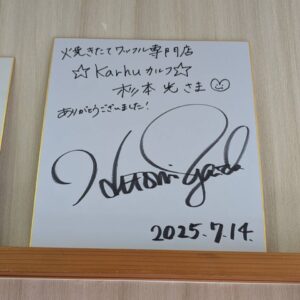 焼きたてワッフル専門店
☆Karhu カルフ☆
杉本 光さま
ありがとうございました!
2025.7.14.